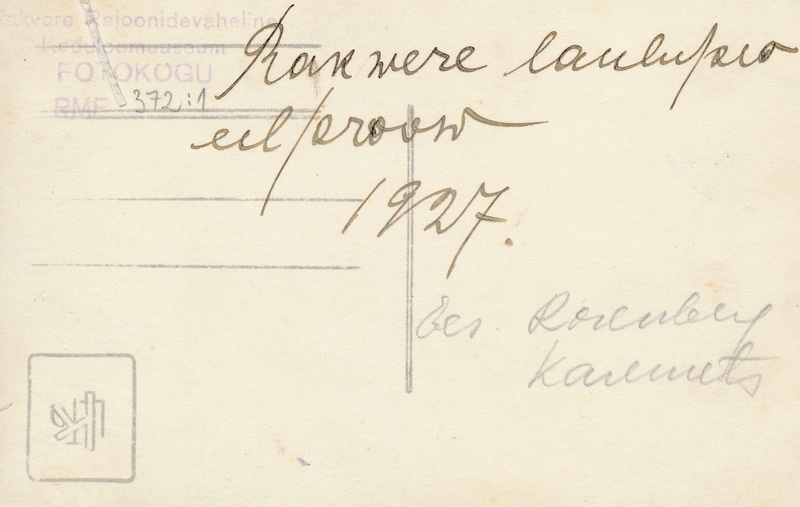 Rakvere Rajoonidevaheline
Koduloomuuseum
FOTOKOGU
RMF 372:1
Rakwere laulupeo
eelproow
1927.
Ees Rosenberg
Karemets